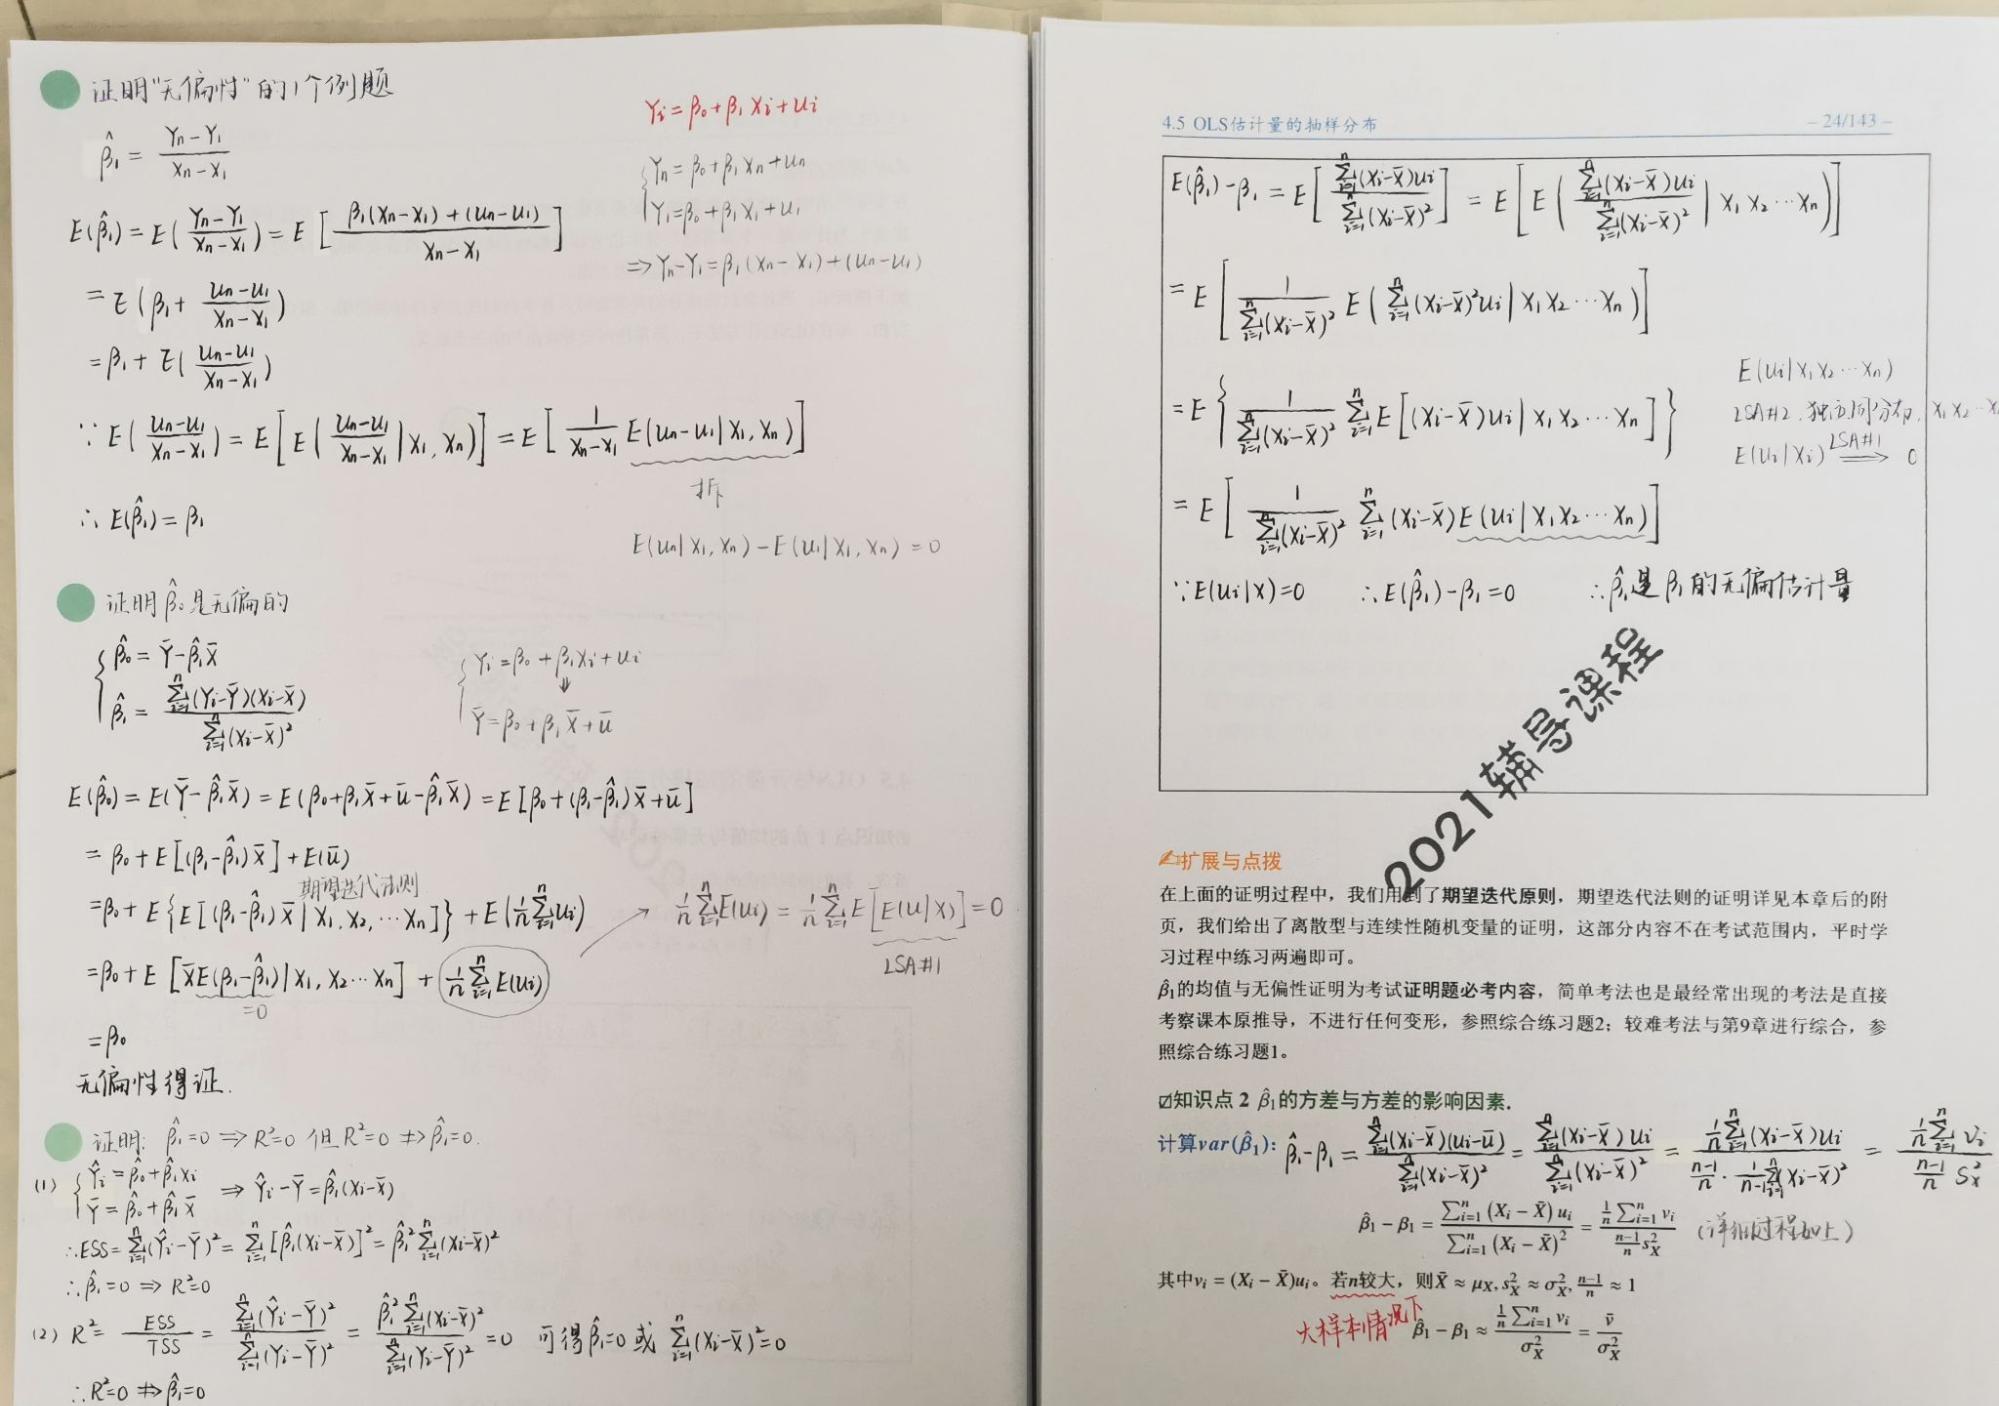 证明"无偏性"的1个例题
Yi = β₀ + β₁Xi + ui
β̂₁ = (Yn - Y₁)/(Xn - X₁)
{ Yn = β₀ + β₁Xn + un
Y₁ = β₀ + β₁X₁ + u₁
⇒ Yn - Y₁ = β₁(Xn - X₁) + (un - u₁)
E(β̂₁) = E((Yn - Y₁)/(Xn - X₁)) = E[(β₁(Xn - X₁) + (un - u₁))/(Xn - X₁)]
= E(β₁ + (un - u₁)/(Xn - X₁))
= β₁ + E((un - u₁)/(Xn - X₁))
∵ E((un - u₁)/(Xn - X₁)) = E[E((un - u₁)/(Xn - X₁) | X₁, Xn)] = E[1/(Xn - X₁) E(un - u₁ | X₁, Xn)]
拆
E(un | X₁, Xn) - E(u₁ | X₁, Xn) = 0
∴ E(β̂₁) = β₁
证明β̂₀是无偏的
{ β̂₀ = Ȳ - β̂₁X̄
β̂₁ = ∑ⁿᵢ₌₁(Yi - Ȳ)(Xi - X̄) / ∑ⁿᵢ₌₁(Xi - X̄)²
{ Yi = β₀ + β₁Xi + ui
⇓
Ȳ = β₀ + β₁X̄ + ū
E(β̂₀) = E(Ȳ - β̂₁X̄) = E(β₀ + β₁X̄ + ū - β̂₁X̄) = E[β₀ + (β₁ - β̂₁)X̄ + ū]
= β₀ + E[(β₁ - β̂₁)X̄] + E(ū)
期望迭代法则
= β₀ + E{E[(β₁ - β̂₁)X̄ | X₁, X₂, ⋯Xn]} + E(1/n ∑ⁿᵢ₌₁ui)
→ 1/n ∑ⁿᵢ₌₁E(ui) = 1/n ∑ⁿᵢ₌₁E[E(u|X)] = 0
LSA#1
= β₀ + E[X̄E(β₁ - β̂₁) | X₁, X₂⋯Xn] + 1/n ∑ⁿᵢ₌₁E(ui)
=0
= β₀
无偏性得证.
证明: β̂₁=0 ⇒ R²=0 但 R²=0 ⇏ β̂₁=0.
(1) { Ŷi = β̂₀ + β̂₁Xi
Ȳ = β̂₀ + β̂₁X̄
⇒ Ŷi - Ȳ = β̂₁(Xi - X̄)
∴ ESS = ∑ⁿᵢ₌₁(Ŷi - Ȳ)² = ∑ⁿᵢ₌₁[β̂₁(Xi - X̄)]² = β̂₁²∑ⁿᵢ₌₁(Xi - X̄)²
∴ β̂₁=0 ⇒ R²=0
(2) R² = ESS/TSS = ∑ⁿᵢ₌₁(Ŷi - Ȳ)² / ∑ⁿᵢ₌₁(Yi - Ȳ)² = β̂₁²∑ⁿᵢ₌₁(Xi - X̄)² / ∑ⁿᵢ₌₁(Yi - Ȳ)² = 0 可得β̂₁=0 或 ∑ⁿᵢ₌₁(Xi - X̄)²=0
∴ R²=0 ⇏ β̂₁=0
4.5 OLS估计量的抽样分布 – 24/143 –
E(β̂₁) - β₁ = E[∑ⁿᵢ₌₁(Xi - X̄)ui / ∑ⁿᵢ₌₁(Xi - X̄)²] = E[E(∑ⁿᵢ₌₁(Xi - X̄)ui / ∑ⁿᵢ₌₁(Xi - X̄)² | X₁ X₂ ⋯Xn)]
= E[1/∑ⁿᵢ₌₁(Xi - X̄)² E(∑ⁿᵢ₌₁(Xi - X̄)²ui | X₁ X₂ ⋯Xn)]
= E{1/∑ⁿᵢ₌₁(Xi - X̄)² ∑ⁿᵢ₌₁E[(Xi - X̄)ui | X₁ X₂ ⋯Xn]}
E(ui | X₁ X₂ ⋯Xn)
LSA#2. 独立同分布, X₁ X₂ ⋯X
E(ui | Xi) LSA#1 ⟹ 0
= E[1/∑ⁿᵢ₌₁(Xi - X̄)² ∑ⁿᵢ₌₁(Xi - X̄)E(ui | X₁ X₂ ⋯Xn)]
∵ E(ui|X)=0 ∴ E(β̂₁) - β₁=0 ∴ β̂₁是β₁的无偏估计量
2021辅导课程
扩展与点拨
在上面的证明过程中，我们用到了期望迭代原则，期望迭代法则的证明详见本章后的附
页，我们给出了离散型与连续性随机变量的证明，这部分内容不在考试范围内，平时学
习过程中练习两遍即可。
β̂₁的均值与无偏性证明为考试证明题必考内容，简单考法也是最经常出现的考法是直接
考察课本原推导，不进行任何变形，参照综合练习题2；较难考法与第9章进行综合，参
照综合练习题1。
☑知识点 2 β̂₁的方差与方差的影响因素.
计算var(β̂₁): β̂₁ - β₁ = ∑ⁿᵢ₌₁(Xi - X̄)(ui - ū) / ∑ⁿᵢ₌₁(Xi - X̄)² = ∑ⁿᵢ₌₁(Xi - X̄)ui / ∑ⁿᵢ₌₁(Xi - X̄)² = 1/n ∑ⁿᵢ₌₁(Xi - X̄)ui / (n-1)/n · 1/(n-1) ∑ⁿᵢ₌₁(Xi - X̄)² = 1/n ∑ⁿᵢ₌₁vi / (n-1)/n S²x
β̂₁ − β₁ = ∑ⁿᵢ₌₁(Xi − X̄)ui / ∑ⁿᵢ₌₁(Xi − X̄)² = 1/n ∑ⁿᵢ₌₁vi / (n−1)/n s²X (详细过程如上)
其中vi = (Xi − X̄)ui。若n较大，则X̄ ≈ μX, s²X ≈ σ²X, (n−1)/n ≈ 1
大样本情况下
β̂₁ − β₁ ≈ 1/n ∑ⁿᵢ₌₁vi / σ²X = v̄/σ²X